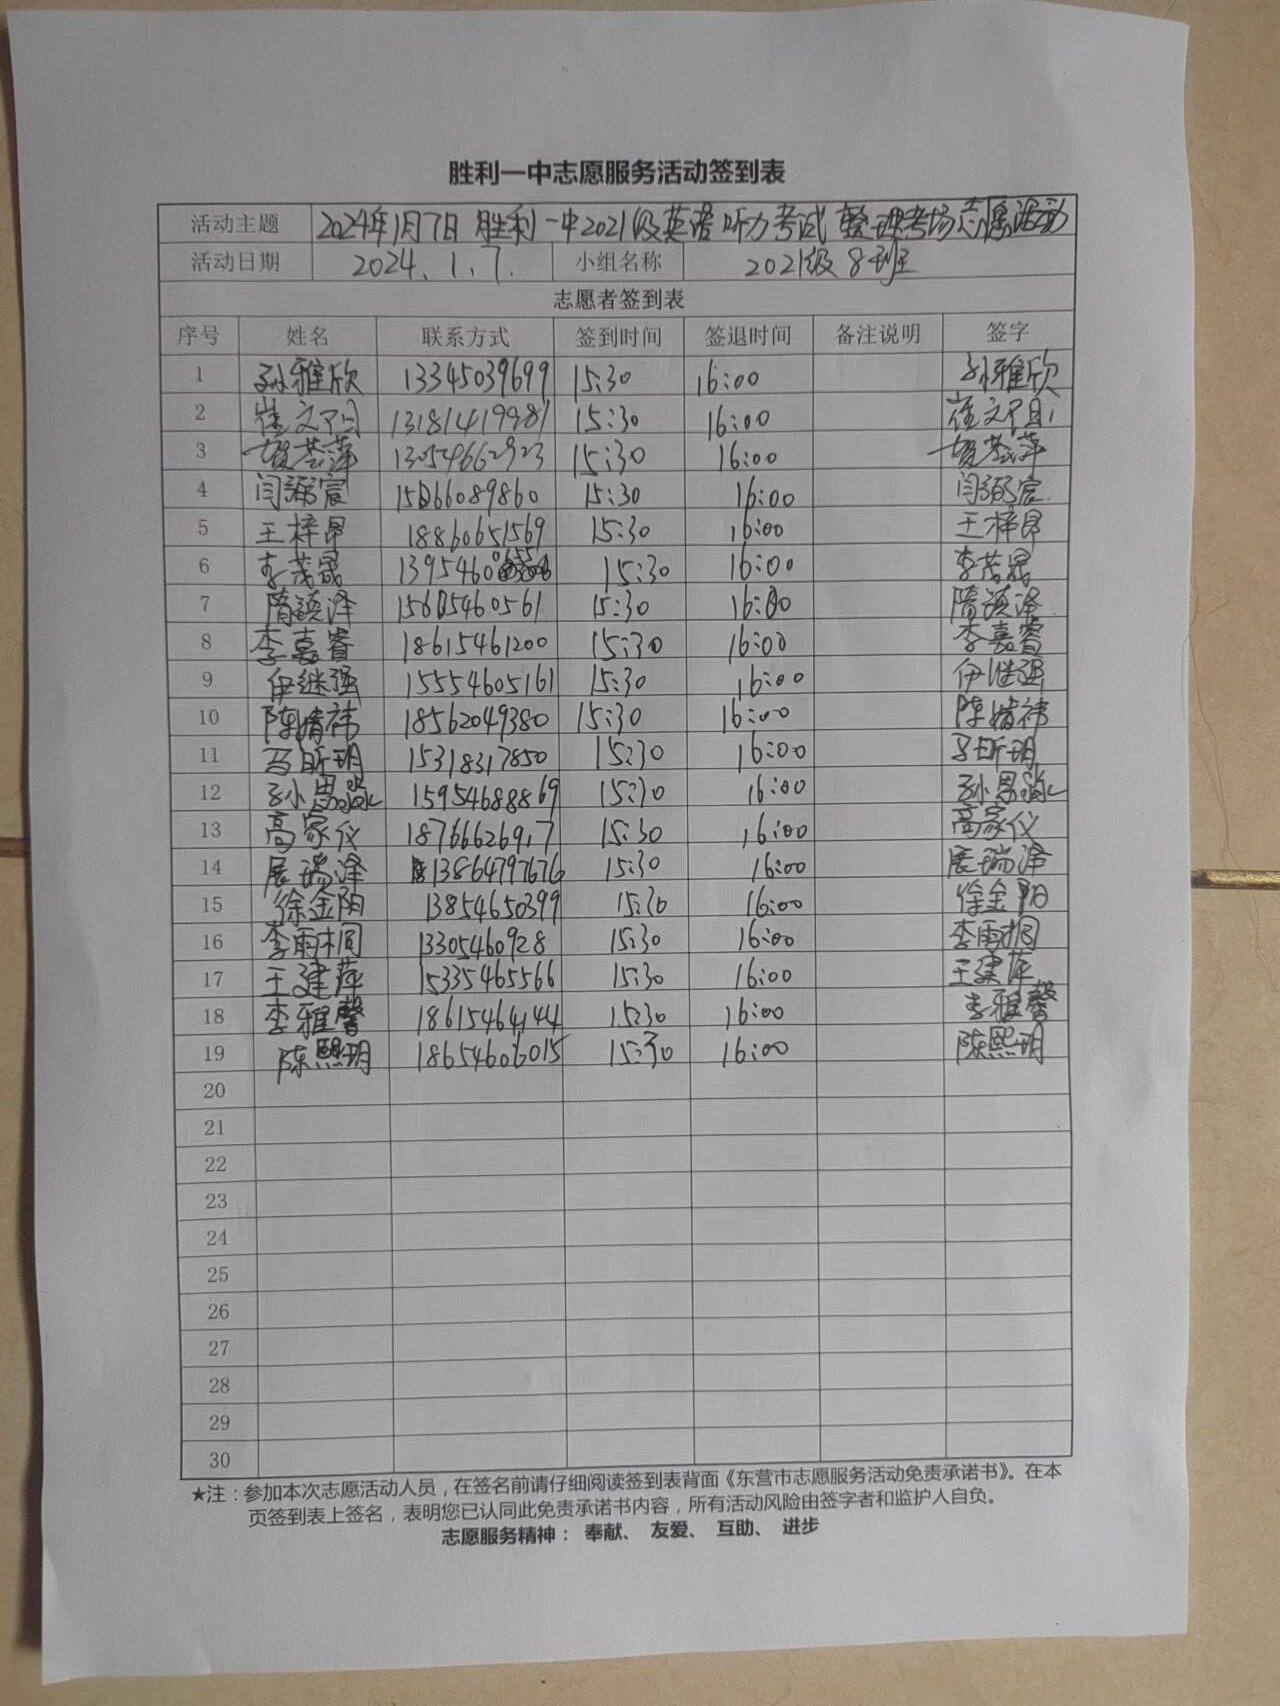 胜利一中志愿服务活动签到表
活动主题 2024年1月7日 胜利一中2021级英语听力考试 整理考场志愿活动
活动日期 2024.1.7. 小组名称 2021级8班
志愿者签到表
序号 姓名 联系方式 签到时间 签退时间 备注说明 签字
1 孙雅欣 13345039699 15:30 16:00 孙雅欣
2 崔文 13181419981 15:30 16:00 崔文
3 13054662923 15:30 16:00
4 闫弼宸 15266089860 15:30 16:00 闫弼宸
5 王梓昂 18860651569 15:30 16:00 王梓昂
6 李茂晟 15:30 16:00 李茂晟
7 隋镇泽 15615460561 15:30 16:00 隋镇泽
8 李嘉睿 18615461200 15:30 16:00 李嘉睿
9 伊继强 15554605161 15:30 16:00 伊继强
10 陈婧祎 18562049380 15:30 16:00 陈婧祎
11 马昕玥 15318317850 15:30 16:00 马昕玥
12 孙思淼 15954688869 15:30 16:00 孙思淼
13 高家仪 18766626917 15:30 16:00 高家仪
14 展瑞泽 13864797676 15:30 16:00 展瑞泽
15 徐金阳 13854650399 15:30 16:00 徐金阳
16 李雨桐 13305460928 15:30 16:00 李雨桐
17 王建萍 15335465566 15:30 16:00 王建萍
18 李雅馨 18615464144 15:30 16:00 李雅馨
19 陈熙玥 18654606015 15:30 16:00 陈熙玥
20
21
22
23
24
25
26
27
28
29
30
★注：参加本次志愿活动人员，在签名前请仔细阅读签到表背面《东营市志愿服务活动免责承诺书》。在本
页签到表上签名，表明您已认同此免责承诺书内容，所有活动风险由签字者和监护人自负。
志愿服务精神： 奉献、 友爱、 互助、 进步